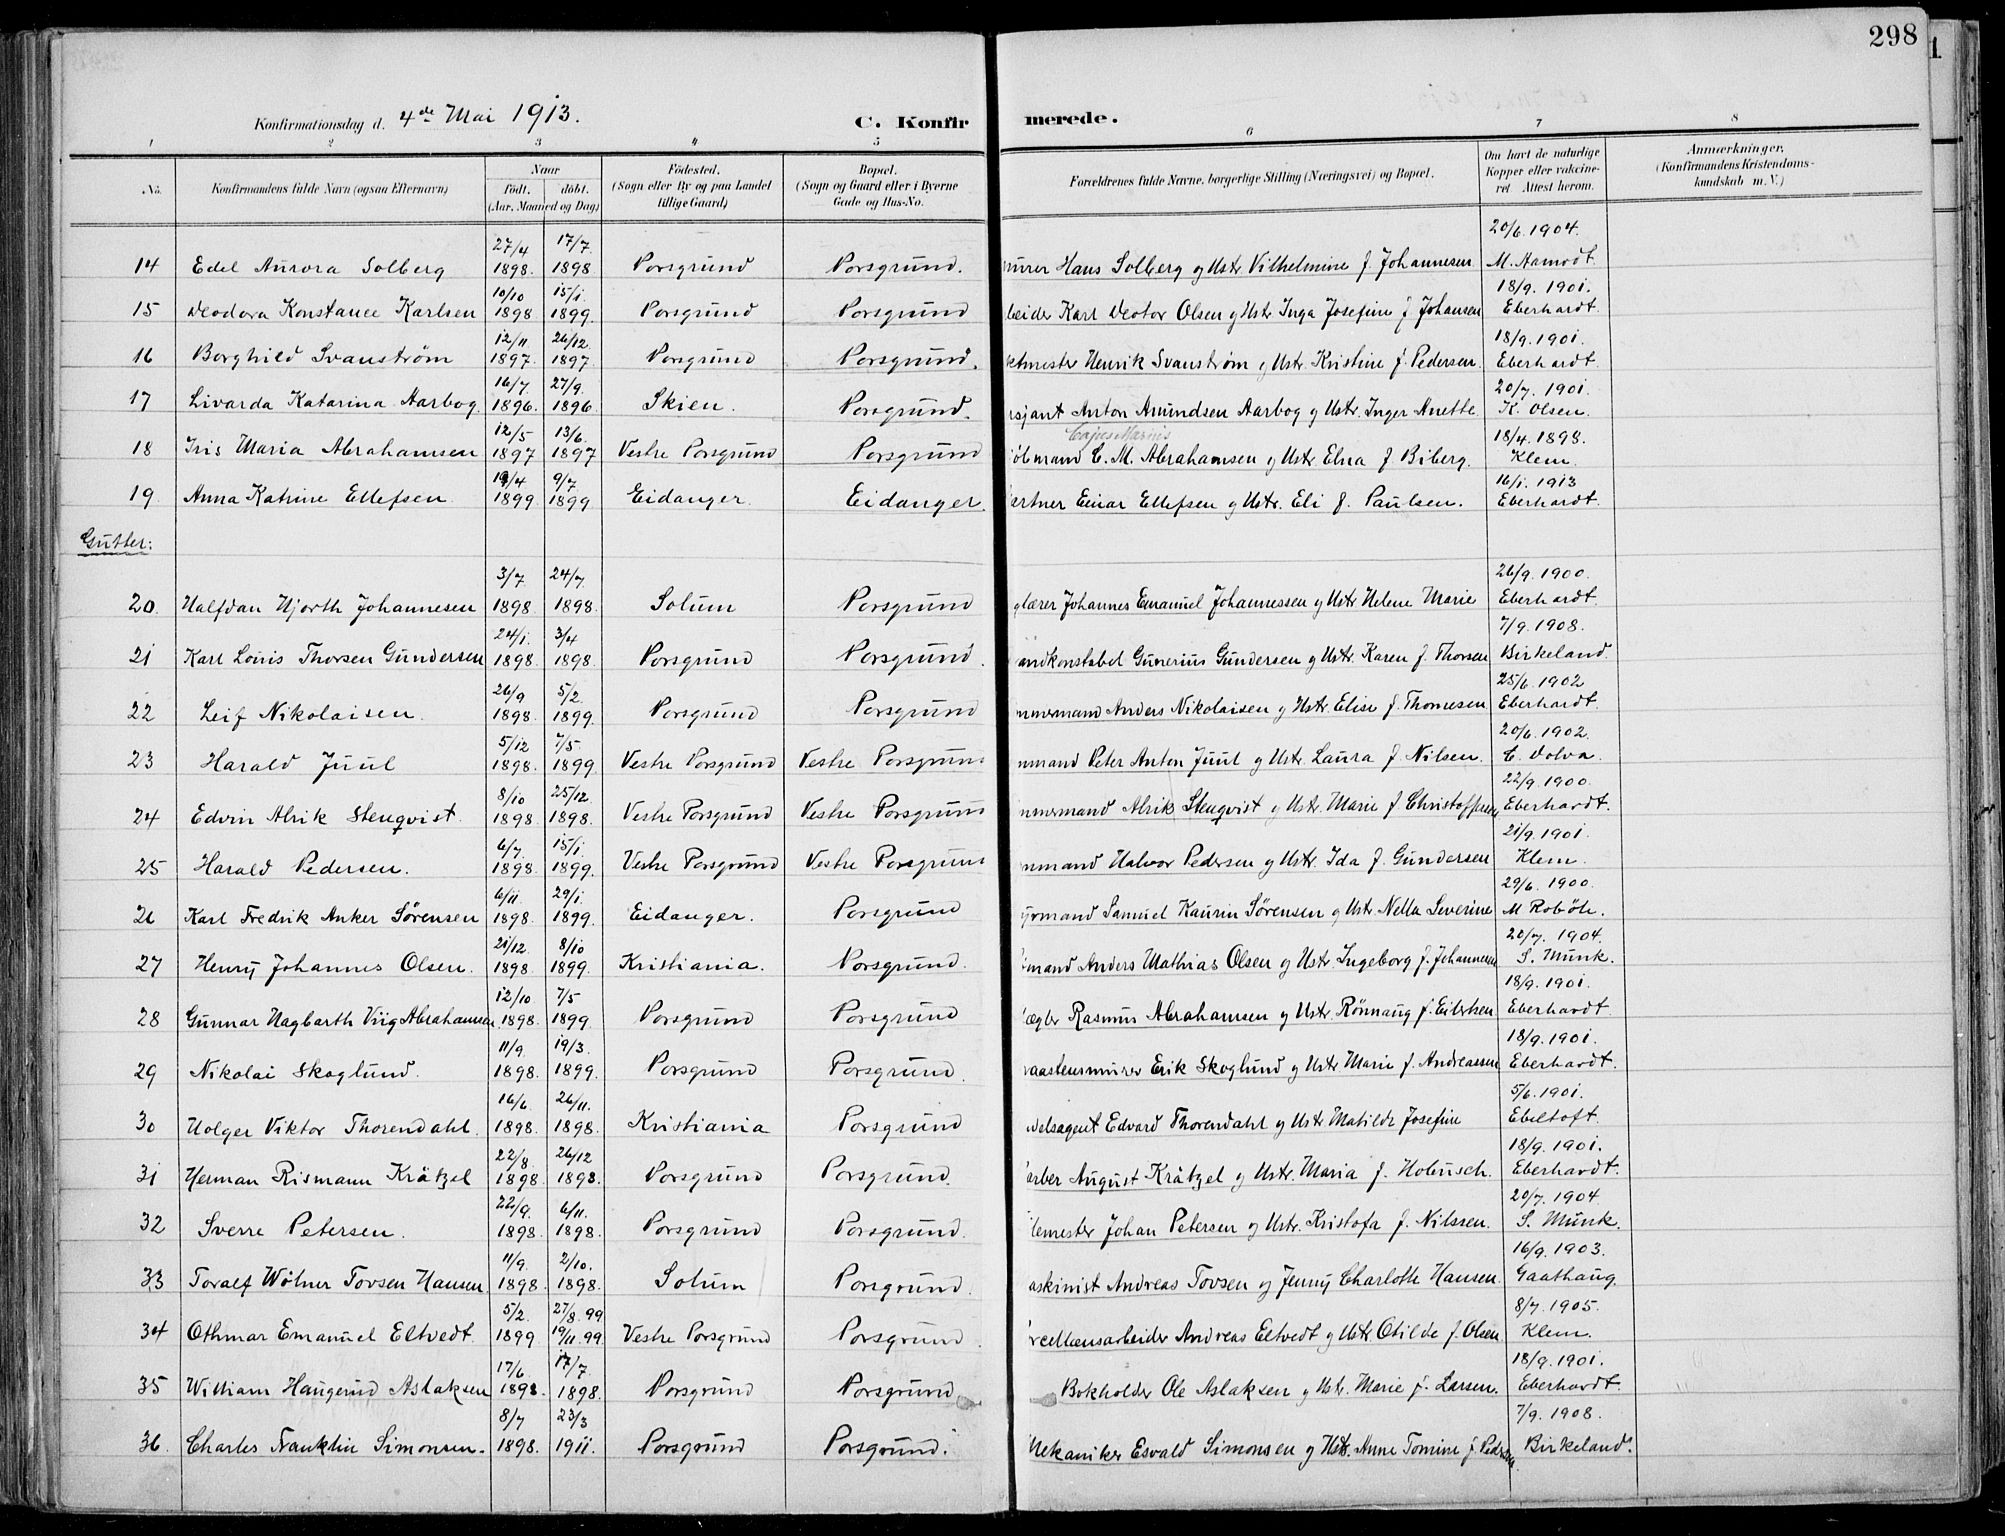 298
Konfirmationsdag d. 4de Mai 1913. C. Konfirmerede.
1 2 3 4 5 6 7 8
No. Konfirmandens fulde Navn (ogsaa Efternavn) Naar födt. döbt. (Aar, Maaned og Dag) Födested. (Sogn eller By og paa Landet tillige Gaard) Bopæl. (Sogn og Gaard eller i Byerne Gade og Hus-No. Forældrenes fulde Navne, borgerlige Stilling (Næringsvei) og Bopæl. Om havt de naturlige Kopper eller vakcineret Attest herom. Anmærkninger, (Konfirmandens Kristendomskundskab m. V.)
14 Edel Aurora Solberg 27/4 1898. 17/7. 1898 Porsgrund Porsgrund. murer Hans Solberg og Ustr. Vilhelmine f. Johannesen 20/6. 1904. M. Aamodt
15 Deodora Konstance Karlsen 10/10 1898 15/1. 1899. Porsgrund Porsgrund beider Karl Deotor Olsen g Ustr Inga Josefine f Johansen 18/9. 1901. Eberhardt.
16 Borghild Svanström 12/11. 1897. 26/12. 1897. Porsgrund Porsgrund. ktmester Henrik Svanström g Ustr. Kristine f. Pedersen 18/9. 1901. Eberhardt.
17 Livarda Katarina Aarbog. 16/7. 1896. 27/9. 1896. Skien. Porsgrund. rsjant Anton Amundsen Aarbog g Ustr. Inger Anette 20/7. 1901. K. Olsen.
Cajus Marius
18 Iris Maria Abrahamsen 12/5 1897 13/6. 1897 Vestre Porsgrund Porsgrund jöbmand C. M. Abrahamsen g Ustr Elna f Biberg. 18/4. 1898. Klem.
19. Anna Katrine Ellefsen 19/4 1899. 9/7 1899 Eidanger. Eidanger. artner Einar Ellefsen g Ustr. Eli f. Paulsen. 16/1. 1913 Eberhardt.
Gutter:
20. Halfdan Hjorth Johannesen 3/7. 1898. 24/7. 1898. Solum Porsgrund glærer Johannes Emanuel Johannessen g Ustr Helene Marie 26/9. 1900. Eberhardt
21 Karl Louis Thorsen Gundersen 24/1. 1898. 3/4 1898. Porsgrund Porsgrund. andkonstabel Gunerius Gundersen g Ustr. Karen f. Thorsen 7/9. 1908. Birkeland.
22 Leif Nikolaisen. 26/9 1898. 5/2. 1899. Porsgrund Porsgrund mmermand Anders Nikolaisen g Ustr. Elise f. Thomesen 25/6. 1902 Eberhardt.
23 Harald Juul 5/12 1898. 7/5. 1899. Vestre Porsgrund Vestre Porsgrund nmand Peter Anton Juul g Ustr. Laura f. Nilsen. 20/6. 1902. C. Dolva.
24 Edvin Alrik Stenqvist 8/10 1898. 25/12. 1898. Vestre Porsgrund Vestre Porsgrund mmermand Alrik Stenqvist g Ustr. Marie f. Christoffersen 22/9. 1900. Eberhardt.
25 Harald Pedersen. 6/7. 1898. 15/1. 1899. Vestre Porsgrund Vestre Porsgrund nmand Halvor Pedersen g Ustr. Ida f. Gundersen 21/9. 1901. Klem.
26 Karl Fredrik Anker Sörensen 6/11 1898. 29/1. 1899. Eidanger. Porsgrund yrmand Samuel Kaurin Sörensen g Ustr Nella Severine 29/6. 1900. M Roböle.
27 Henry Johannes Olsen. 21/12. 1898. 8/10 1899. Kristiania. Porsgrund. mand Anders Mathias Olsen g Ustr. Ingeborg f. Johannesen 20/7. 1904. S. Munk.
28 Gunnar Hagbarth Viig Abrahamsen 12/10. 1898. 7/5 1899. Porsgrund Porsgrund ægler Rasmus Abrahamsen g Ustr. Rönnaug f. Eilertsen 18/9. 1901. Eberhardt
29 Nikolai Skoglund. 11/9. 1898. 19/3. 1899. Porsgrund Porsgrund. raastensmurer Erik Skoglund g Ustr Marie f. Andreassen 18/9. 1901. Eberhardt.
30 Holger Viktor Thorendahl. 16/6. 1898. 26/11. 1898. Kristiania Porsgrund delsagent Edvard Thorendahl g Ustr Matilde Josefine 5/6. 1901. Ebeltoft.
31 Herman Rismann Krätzel 22/8. 1898. 26/12 1898. Porsgrund Porsgrund. arber August Krätzel g Ustr. Maria f. Hobusch. 18/9. 1901. Eberhardt.
32 Sverre Petersen. 22/9. 1898. 6/11. 1898. Porsgrund Porsgrund. lemester Johan Petersen g Ustr. Kristofa f. Nilssen. 20/7. 1904 S. Munk.
33 Toralf Wölner Tovsen Hansen 11/9. 1898. 2/10. 1898. Solum Porsgrund. askinist Andreas Tovsen og Jenny Charlotte Hansen. 16/9. 1903. Gaathaug.
34 Othmar Emanuel Eltvedt. 5/2. 1899. 27/8. 99 19/11. 99. Vestre Porsgrund Porsgrund. rcellænsarbeider Andreas Eltvedt g Ustr Otilde f. Olsen 8/7. 1905. Klem.
35 William Haugerud Aslaksen 17/6 1898. 17/7. 1898. Porsgrund Porsgrund Bokholder Ole Aslaksen g Ustr. Marie f. Larsen. 18/9. 1901. Eberhardt.
36. Charles Franklin Simonsen. 8/7 1898. 23/3 1911. Porsgrund Porsgrund. Mekaniker Esvald Simonsen g Ustr. Anne Tomine f. Pedersen. 7/9. 1908. Birkeland.